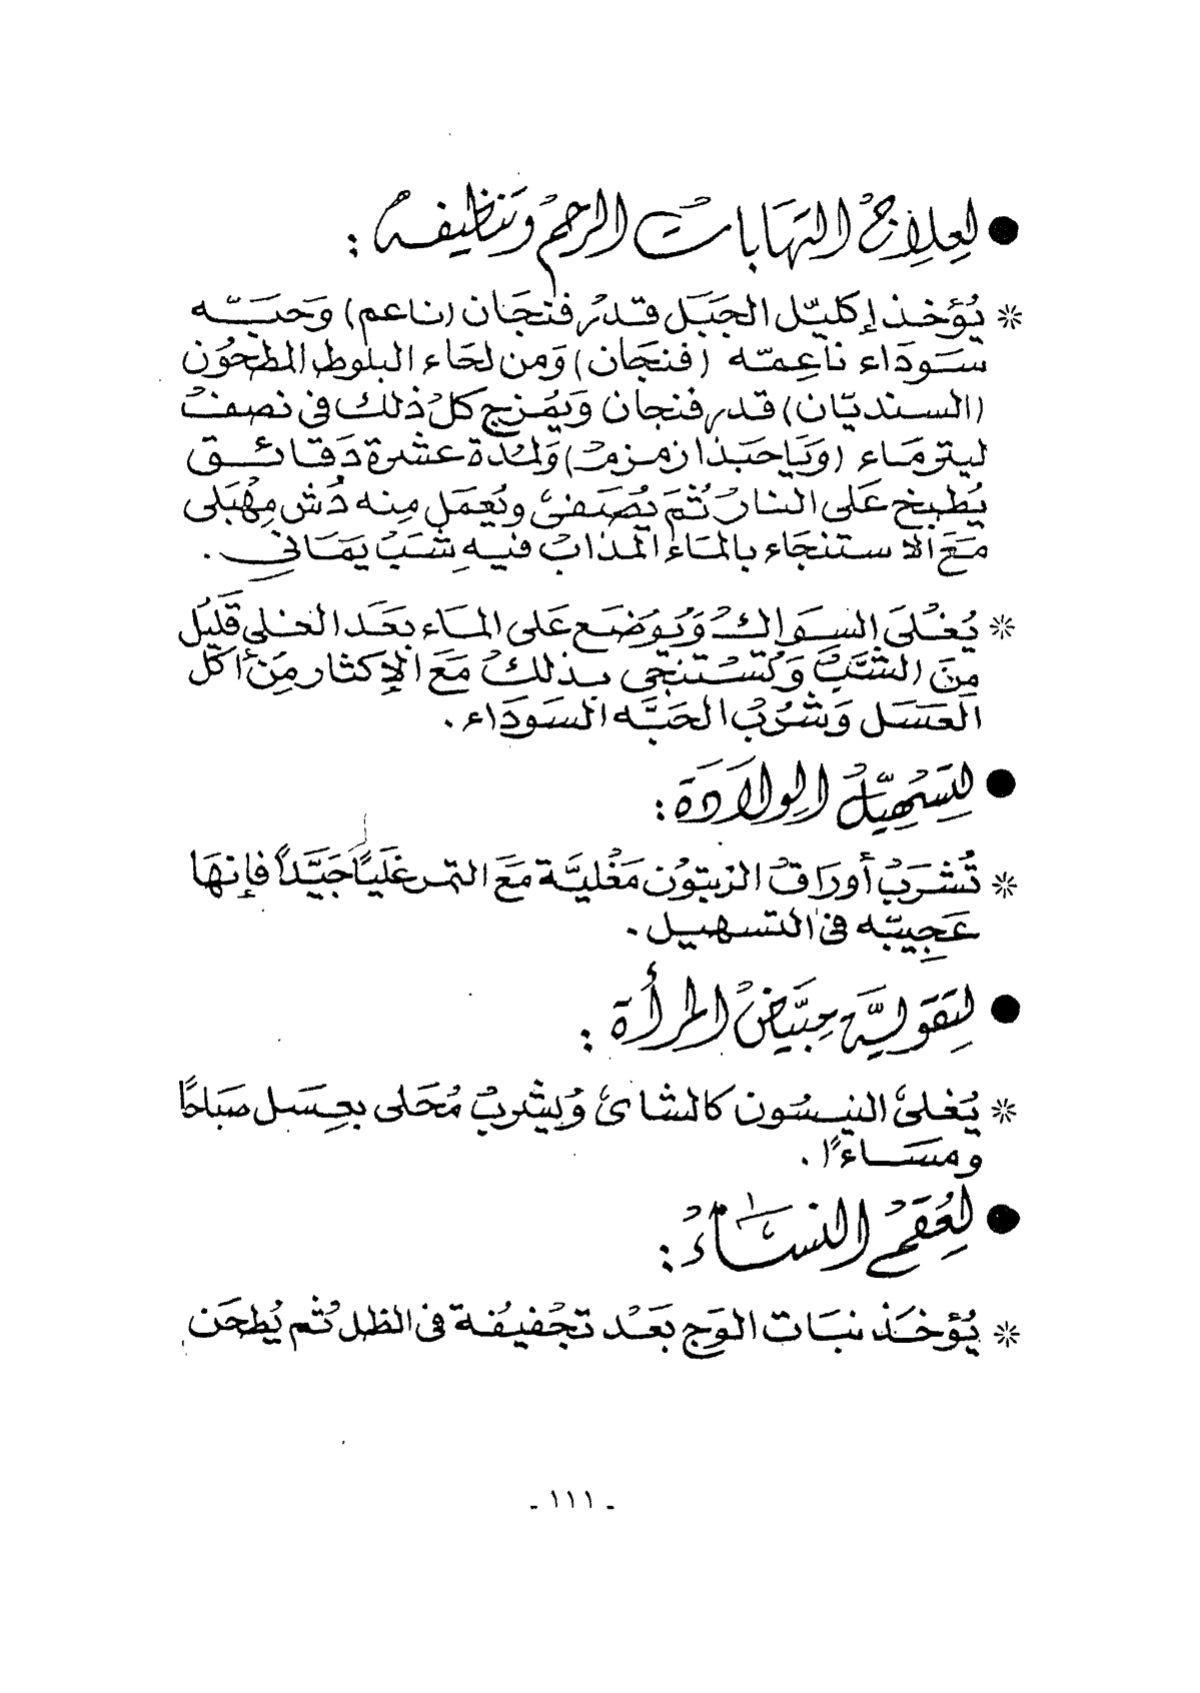 ● لعلاج التهابات الرحم وتنظيفه :
* يُؤخذ إكليل الجبَل قدر فنجان (ناعم) وَحبَّه
سَودَاء ناعِمّه (فنجَان) وَمن لحَاء البلوط المطحُون
(السنديّان) قدر فنجان وَيمُزج كلُ ذلك في نصف
ليتر مَاء (وَيَا حَبذا زمزم) وَلمُدة عشرة دَقائق
يُطبخ عَلى النار ثُم يُصَفىٰ ويُعمَل مِنه دُش مِهْبَلى
مَعَ الاستنجَاء بالمَاء المذابُ فيهِ شَبُ يمَاني .
* يُغلىَ السِوَاك وَيُوضَع عَلى المَاء بعَد الغلي قَليُل
مِنَ الشَّبَّ وَتُسْتنجى بذلك مَعَ الإكثار مِنَ أكل
العَسَل وَشرُبْ الحَبَّه السَودَاء .
● لِتسَهيّل الوِلاَدَة :
* تُشرَبُ أورَاقُ الزيتوُن مَغْليَّة مَعَ التمر غَليَاً جَيَّداً فإنهَا
عَجِيبّه في التسهيل .
● لتِقَوليَّة مِبَّيَضْ المرأة :
* يُغلىٰ الينسُون كالشاىْ وُيشربُ مُحَلى بعِسَل صبَاحًا
ومسَاءًا .
● لعُقمِ النسَاءْ :
* يُؤخَذ نبَات الوَج بَعَدْ تجْفيفُة في الظل ثُم يُطحَن
- ١١١ -